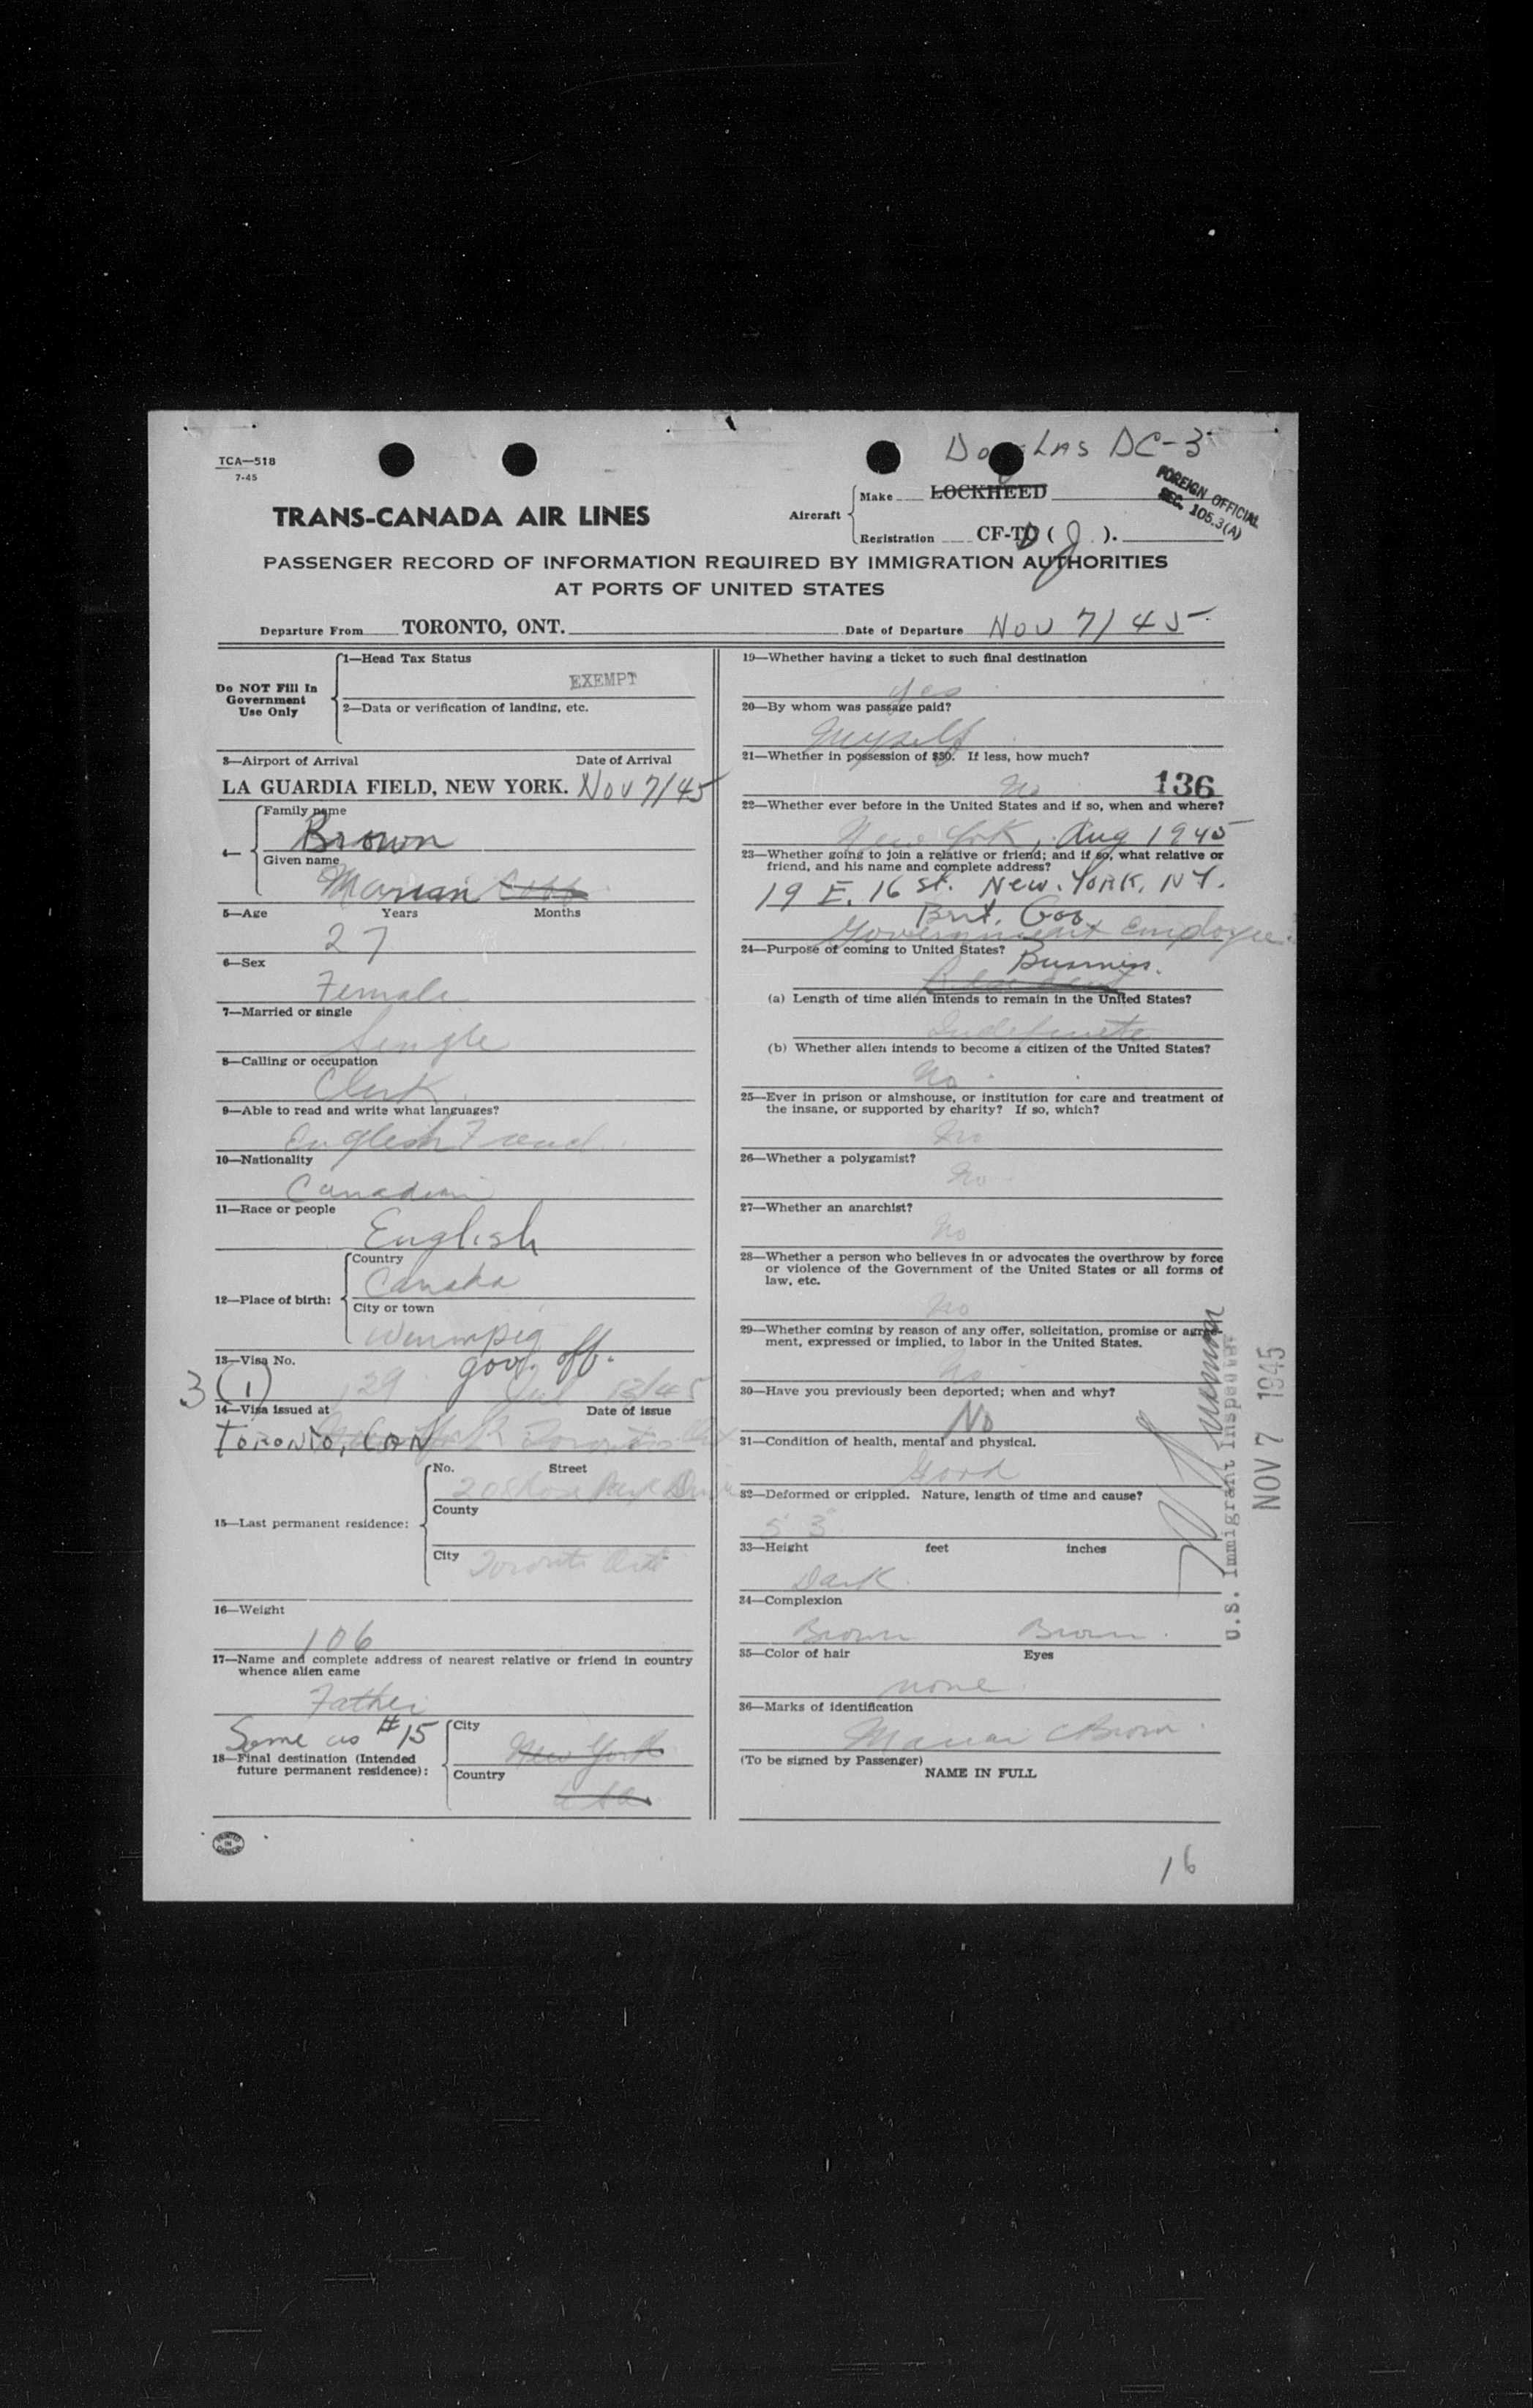 Douglas DC-3
TCA—518
7-45
FOREIGN OFFICIAL
SEC. 105.3(A)
Make LOCKHEED
TRANS-CANADA AIR LINES
Aircraft
Registration CF-TD ( J ).
PASSENGER RECORD OF INFORMATION REQUIRED BY IMMIGRATION AUTHORITIES
AT PORTS OF UNITED STATES
Departure From TORONTO, ONT. Date of Departure Nov 7/45
Do NOT Fill In
Government
Use Only
1—Head Tax Status
EXEMPT
2—Data or verification of landing, etc.
3—Airport of Arrival Date of Arrival
LA GUARDIA FIELD, NEW YORK. Nov 7/45
4—
Family name
Brown
Given name
Marian
5—Age Years Months
27
6—Sex
Female
7—Married or single
Single
8—Calling or occupation
Clerk
9—Able to read and write what languages?
English French
10—Nationality
Canadian
11—Race or people
English
12—Place of birth:
Country
Canada
City or town
Winnipeg
13—Visa No.
gov. off.
3 (1) 129 Jul 13/45
14—Visa issued at Date of issue
TORONTO, CAN
15—Last permanent residence:
No. Street
208 Rose Park Drive
County
City Toronto Ont
16—Weight
106
17—Name and complete address of nearest relative or friend in country
whence alien came
Father
Same as #15
18—Final destination (Intended
future permanent residence):
City
New York
Country
USA
PRINTED
IN
CANADA
19—Whether having a ticket to such final destination
yes
20—By whom was passage paid?
Myself
21—Whether in possession of $50. If less, how much?
No 136
22—Whether ever before in the United States and if so, when and where?
New York, Aug 1945
23—Whether going to join a relative or friend; and if so, what relative or
friend, and his name and complete address?
19 E. 16 St. New. York, NY.
Brit. Gov
Government Employee
24—Purpose of coming to United States?
Business.
(a) Length of time alien intends to remain in the United States?
Indefinite
(b) Whether alien intends to become a citizen of the United States?
No
25—Ever in prison or almshouse, or institution for care and treatment of
the insane, or supported by charity? If so, which?
No
26—Whether a polygamist?
No
27—Whether an anarchist?
No
28—Whether a person who believes in or advocates the overthrow by force
or violence of the Government of the United States or all forms of
law, etc.
No
29—Whether coming by reason of any offer, solicitation, promise or agree-
ment, expressed or implied, to labor in the United States.
No
30—Have you previously been deported; when and why?
No
31—Condition of health, mental and physical.
Good
32—Deformed or crippled. Nature, length of time and cause?
5 3
33—Height feet inches
Dark
34—Complexion
Brown Brown
35—Color of hair Eyes
none
36—Marks of identification
Marian C Brown
(To be signed by Passenger)
NAME IN FULL
U.S. Immigrant Inspector
NOV 7 1945
16